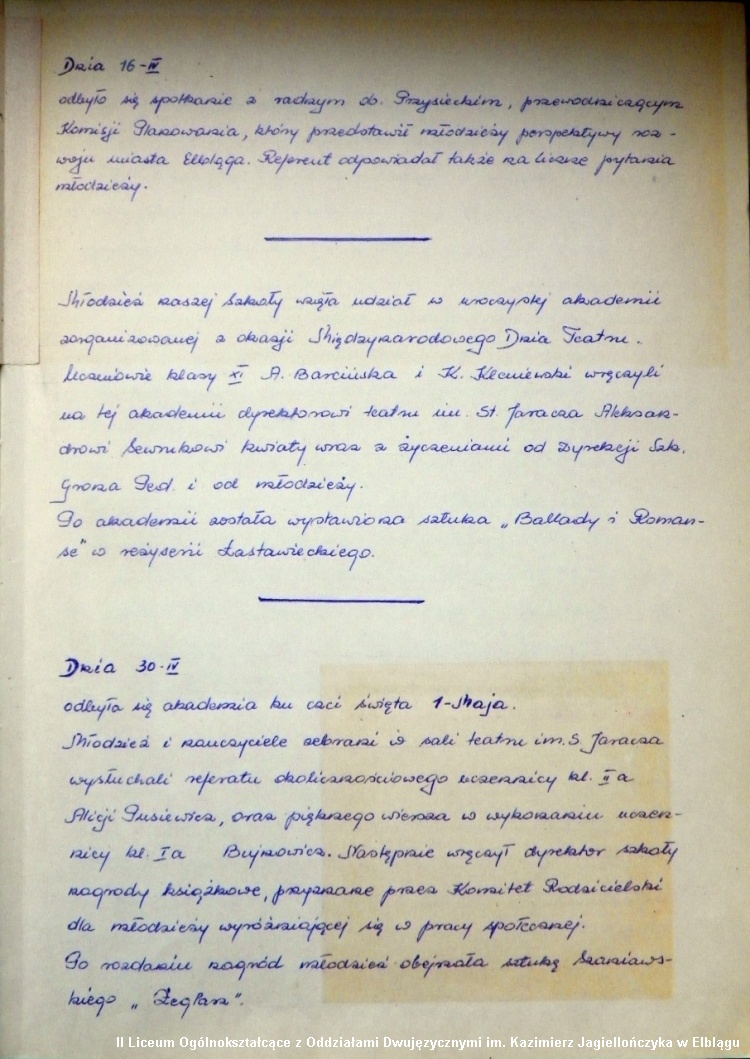 Dnia 16-IV
odbyło się spotkanie z radnym ob. Przysieckim, przewodniczącym
Komisji Planowania, który przedstawił młodzieży perspektywy roz-
woju miasta Elbląga. Referent odpowiadał także na liczne pytania
młodzieży.
Młodzież naszej szkoły wzięła udział w uroczystej akademii
zorganizowanej z okazji Międzynarodowego Dnia Teatru.
Uczniowie klasy XI A. Barcińska i K. Kleniewski wręczyli
na tej akademii dyrektorowi teatru im. St. Jaracza Aleksan-
drowi Sewrukowi kwiaty wraz z życzeniami od Dyrekcji Szk.
Grona Ped. i od młodzieży.
Po akademii została wystawiona sztuka „Ballady i Roman-
se" w reżyserii Łastawieckiego.
Dnia 30-IV
odbyła się akademia ku czci święta 1-Maja.
Młodzież i nauczyciele zebrani w sali teatru im. S. Jaracza
wysłuchali referatu okolicznościowego uczennicy kl. II a
Alicji Gusiewicz, oraz pięknego wiersza w wykonaniu uczen-
nicy kl. I a Bujnowicz. Następnie wręczył dyrektor szkoły
nagrody książkowe, przyznane przez Komitet Rodzicielski
dla młodzieży wyróżniającej się w pracy społecznej.
Po rozdaniu nagród młodzież obejrzała sztukę Szaniaws-
kiego „Żeglarz".
II Liceum Ogólnokształcące z Oddziałami Dwujęzycznymi im. Kazimierz Jagiellończyka w Elblągu